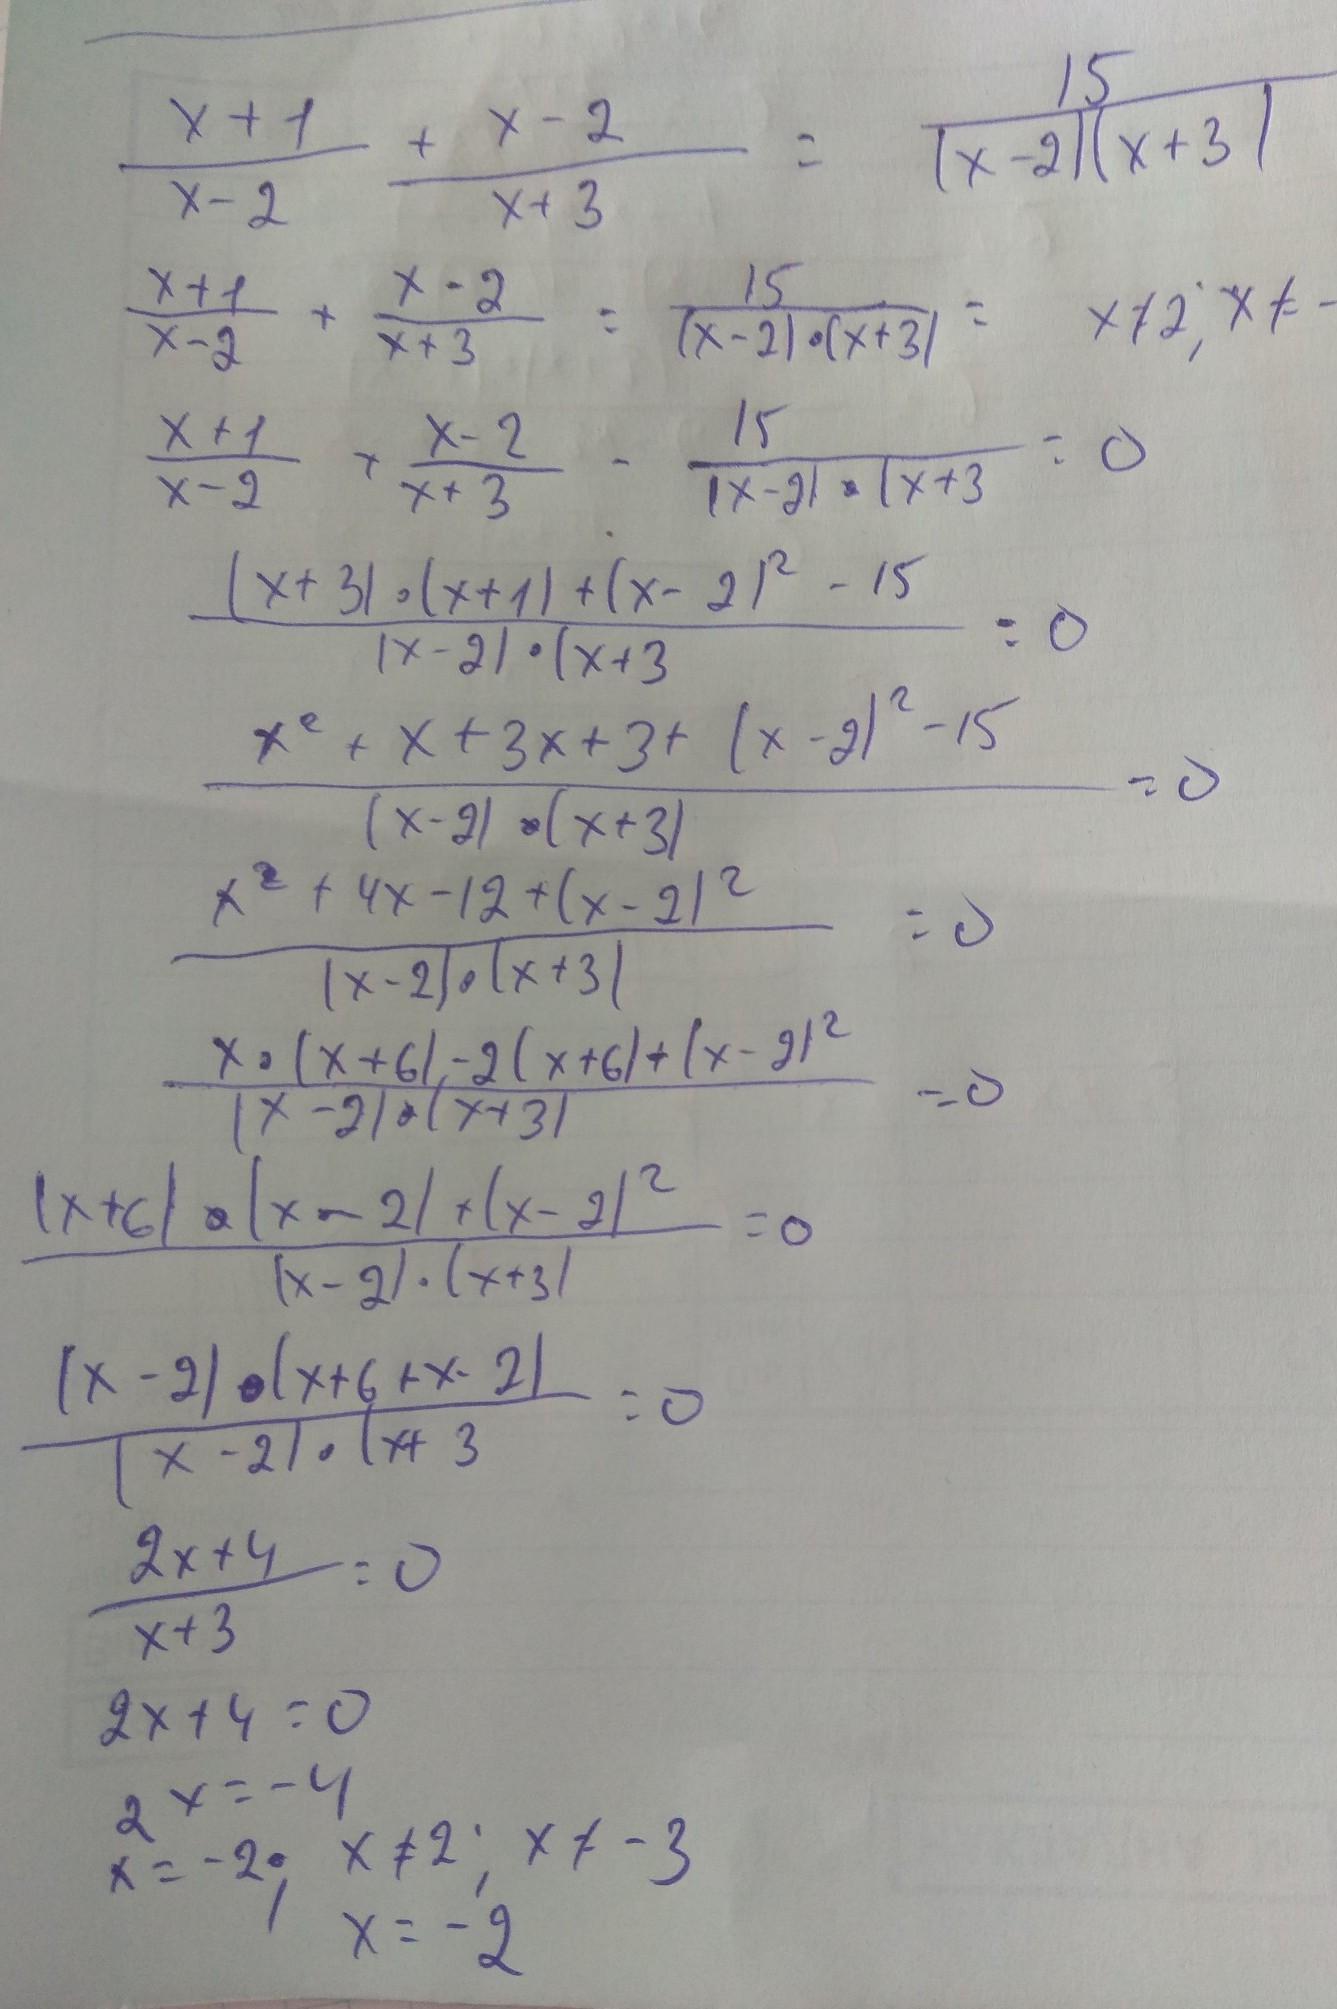 (x+1)/(x-2) + (x-2)/(x+3) = 15/((x-2)(x+3))
(x+1)/(x-2) + (x-2)/(x+3) = 15/((x-2)•(x+3)) = x≠2; x≠-
(x+1)/(x-2) + (x-2)/(x+3) - 15/((x-2)•(x+3 = 0
((x+3)•(x+1)+(x-2)² - 15)/((x-2)•(x+3 = 0
(x² + x + 3x + 3 + (x-2)² - 15)/((x-2)•(x+3)) = 0
(x² + 4x - 12 + (x-2)²)/((x-2)•(x+3)) = 0
(x•(x+6)-2(x+6)+(x-2)²)/((x-2)•(x+3)) = 0
((x+6)•(x-2)+(x-2)²)/((x-2)•(x+3)) = 0
((x-2)•(x+6+x-2))/((x-2)•(x+3 = 0
(2x+4)/(x+3) = 0
2x+4=0
2x=-4
x=-2; x≠2; x≠-3
x=-2